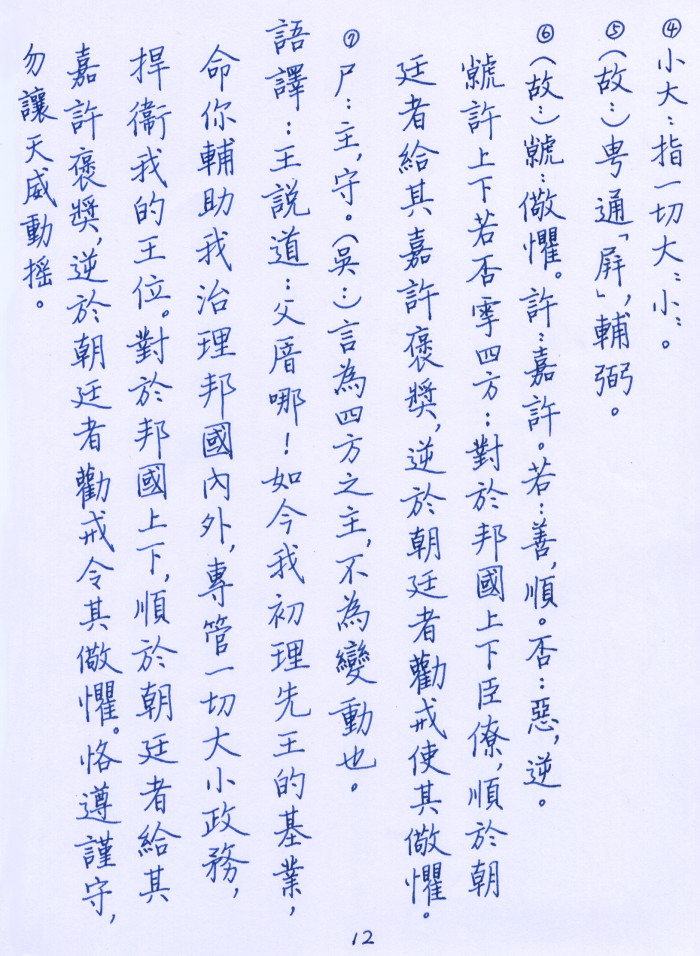 ④小大：指一切大：小：。
⑤(故：)甹通「屏」,輔弼。
⑥(故：)虩：儆懼。許：嘉許。若：善,順。否：惡,逆。
虩許上下若否雩四方：對於邦國上下臣僚,順於朝
廷者給其嘉許褒獎,逆於朝廷者勸戒使其儆懼。
⑦尸：主,守。(吳：)言為四方之主,不為變動也。
語譯：王說道：父厝哪！如今我初理先王的基業,
命你輔助我治理邦國內外,專管一切大小政務,
捍衞我的王位。對於邦國上下,順於朝廷者給其
嘉許褒獎,逆於朝廷者勸戒令其儆懼。恪遵謹守,
勿讓天威動搖。
12